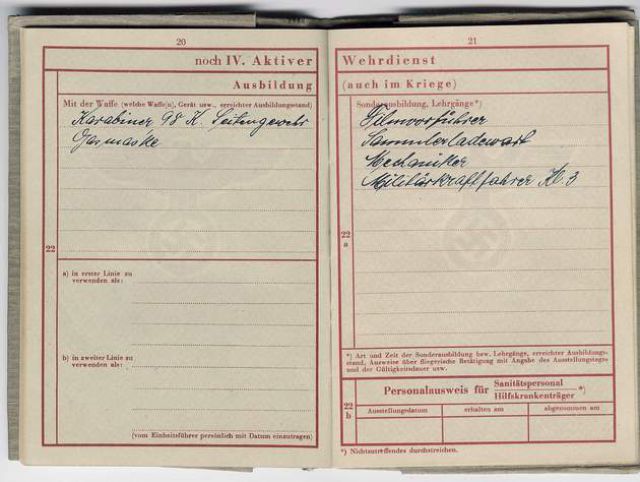 20
noch IV. Aktiver
Ausbildung
Mit der Waffe (welche Waffe(n), Gerät usw., erreichter Ausbildungsstand)
Karabiner 98 K. Seitengewehr
Gasmaske
22
a) in erster Linie zu
verwenden als:
b) in zweiter Linie zu
verwenden als:
(vom Einheitsführer persönlich mit Datum einzutragen)
21
Wehrdienst
(auch im Kriege)
Sonderausbildung, Lehrgänge*)
Filmvorführer
Sammlerladewart
Mechaniker
Militärkraftfahrer Kl. 3
22
a
*) Art und Zeit der Sonderausbildung bzw. Lehrgänge, erreichter Ausbildungs-
stand, Ausweise über fliegerische Betätigung mit Angabe des Ausstellungstages
und der Gültigkeitsdauer usw.
22
b
Personalausweis für Sanitätspersonal *)
Hilfskrankenträger
Ausstellungsdatum erhalten am abgenommen am
*) Nichtzutreffendes durchstreichen.